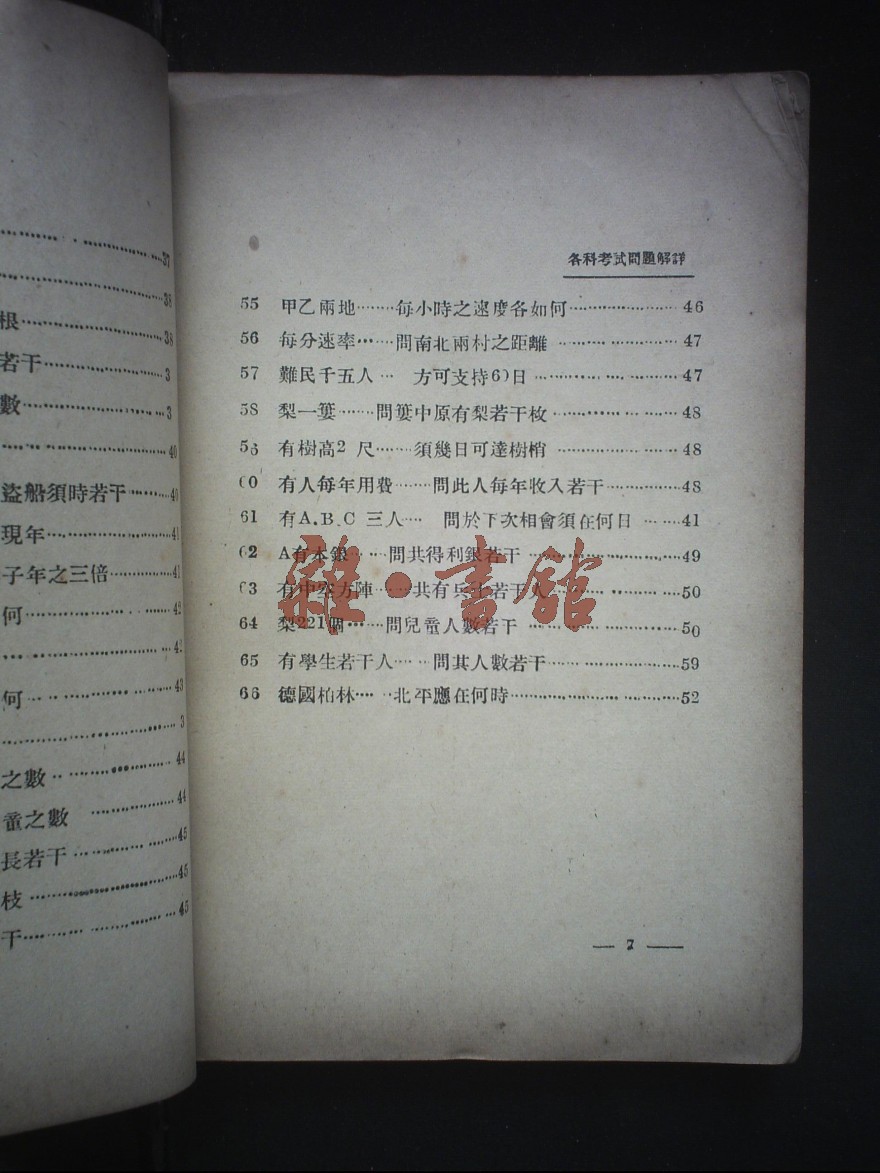 37
38
根……38
若干……3
數……3
……40
盜船須時若干……40
現年……41
子年之三倍……41
何……42
……42
何……43
……3
之數……44
童之數……44
長若干……45
枝……45
干……45
各科考試問題解詳
55 甲乙兩地……每小時之速度各如何……46
56 每分速率……問南北兩村之距離……47
57 難民千五人…方可支持60日……47
58 梨一簍……問簍中原有梨若干枚……48
56 有樹高2 尺……須幾日可達樹梢……48
60 有人每年用費……問此人每年收入若干……48
61 有A.B.C 三人… 問於下次相會須在何日……41
62 A有本銀……問共得利銀若干……49
63 有中空方陣……共有兵士若干人……50
64 梨221個……問兒童人數若干……50
65 有學生若干人……問其人數若干……59
66 德國柏林……北平應在何時……52
雜·書館
— 7 —